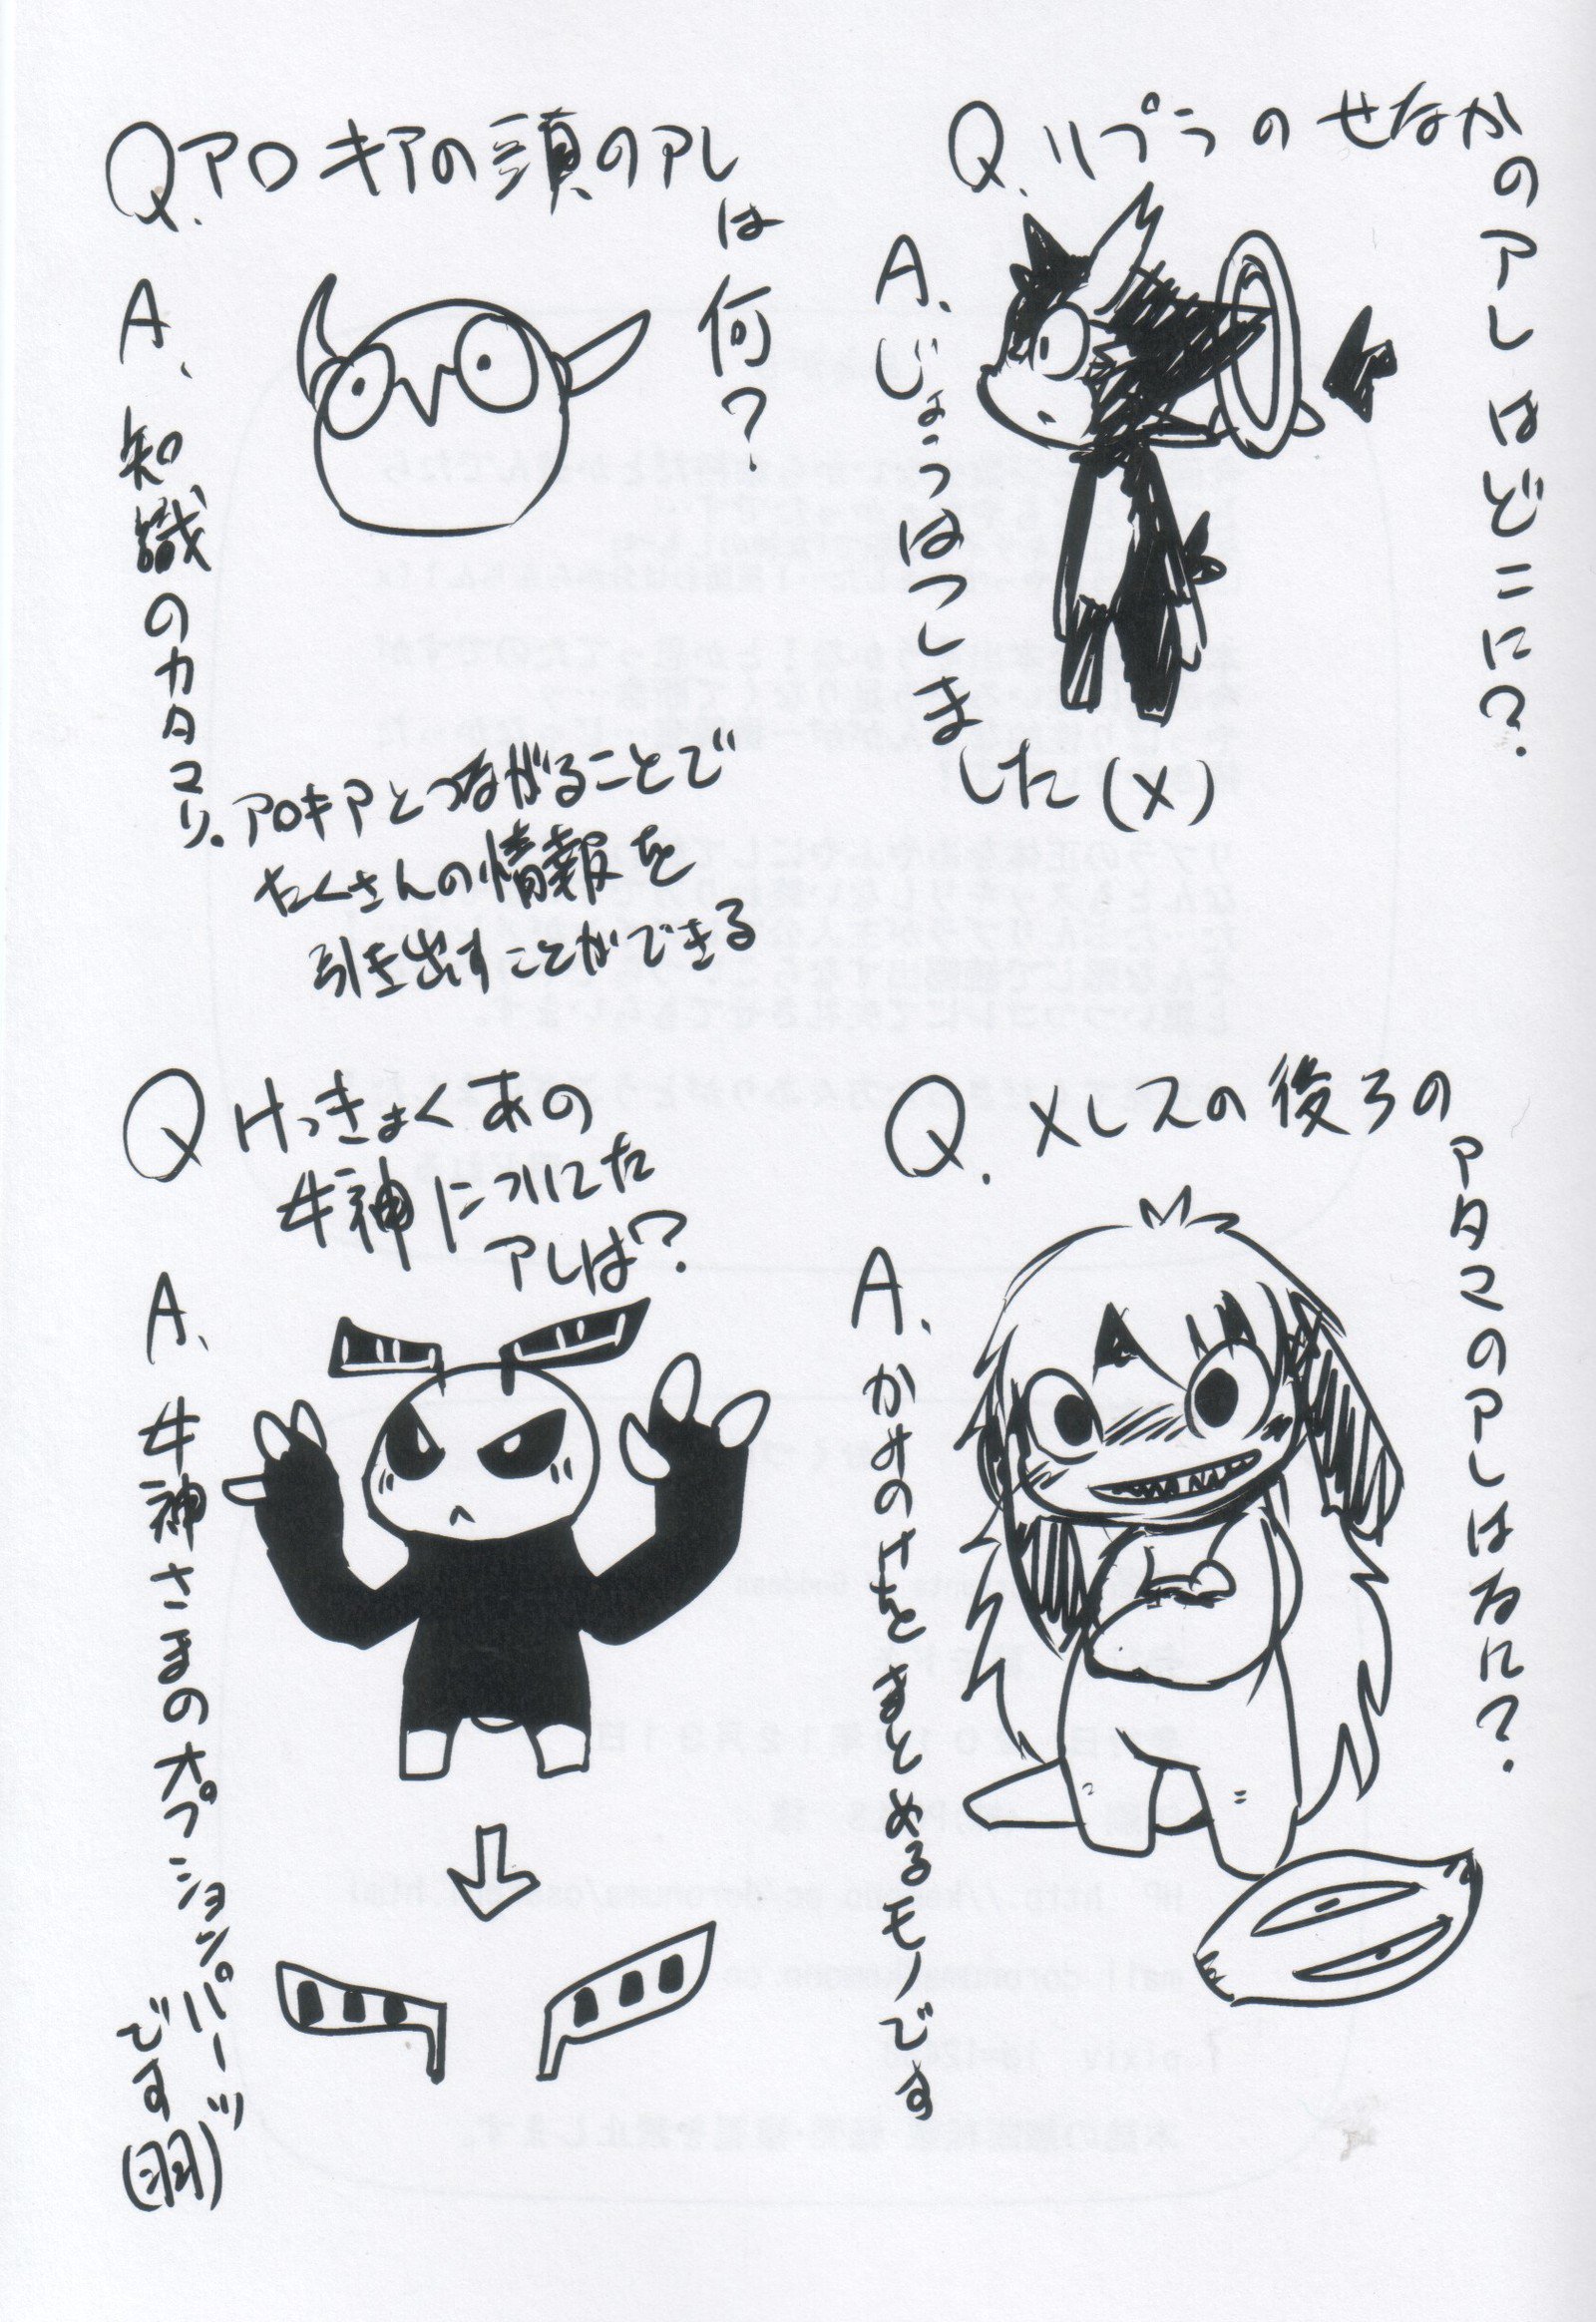 Q.リプラのせなか
のアレはどこに?
A、じょうはつしま
した(メ)
Q.アロキアの頭のアレ
は何?
A、知識のカタマリ。
アロキアとつながることで
たくさんの情報を
引き出すことができる
Q.メレスの後ろの
アタマのアレはなに?
A、かみのけをまとめるモノです
Qけっきょくあの
女神についてた
アレは?
A、女神さまのオプションパーツ
です(羽)